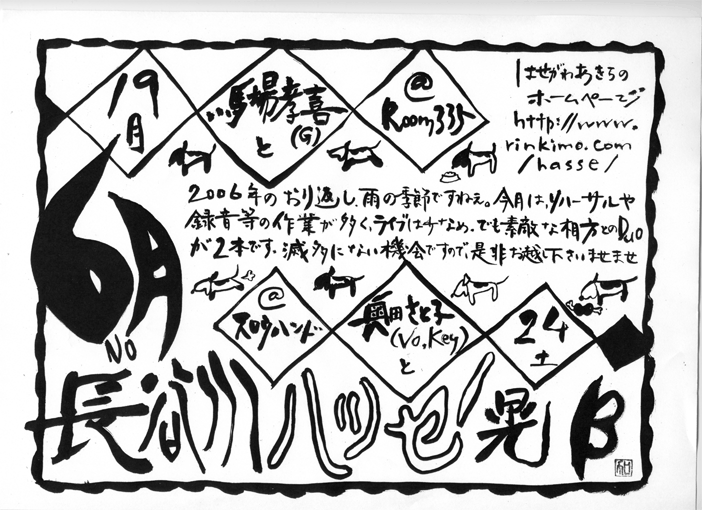 19
月
馬場孝喜
(G)
と
@
Room335
はせがわあきらの
ホームページ
http://www.
rinkimo.com
/hasse/
2006年のおり返し、雨の季節ですねぇ。今月は、リハーサルや
録音等の作業が多く、ライブは少なめ。でも素敵な相方とのDuo
が2本です。滅多にない機会ですので、是非お越し下さいませませ
@
スロウハンド
奥田さと子
(Vo,Key)
と
24
土
6月
NO
長谷川ハッセ晃
B